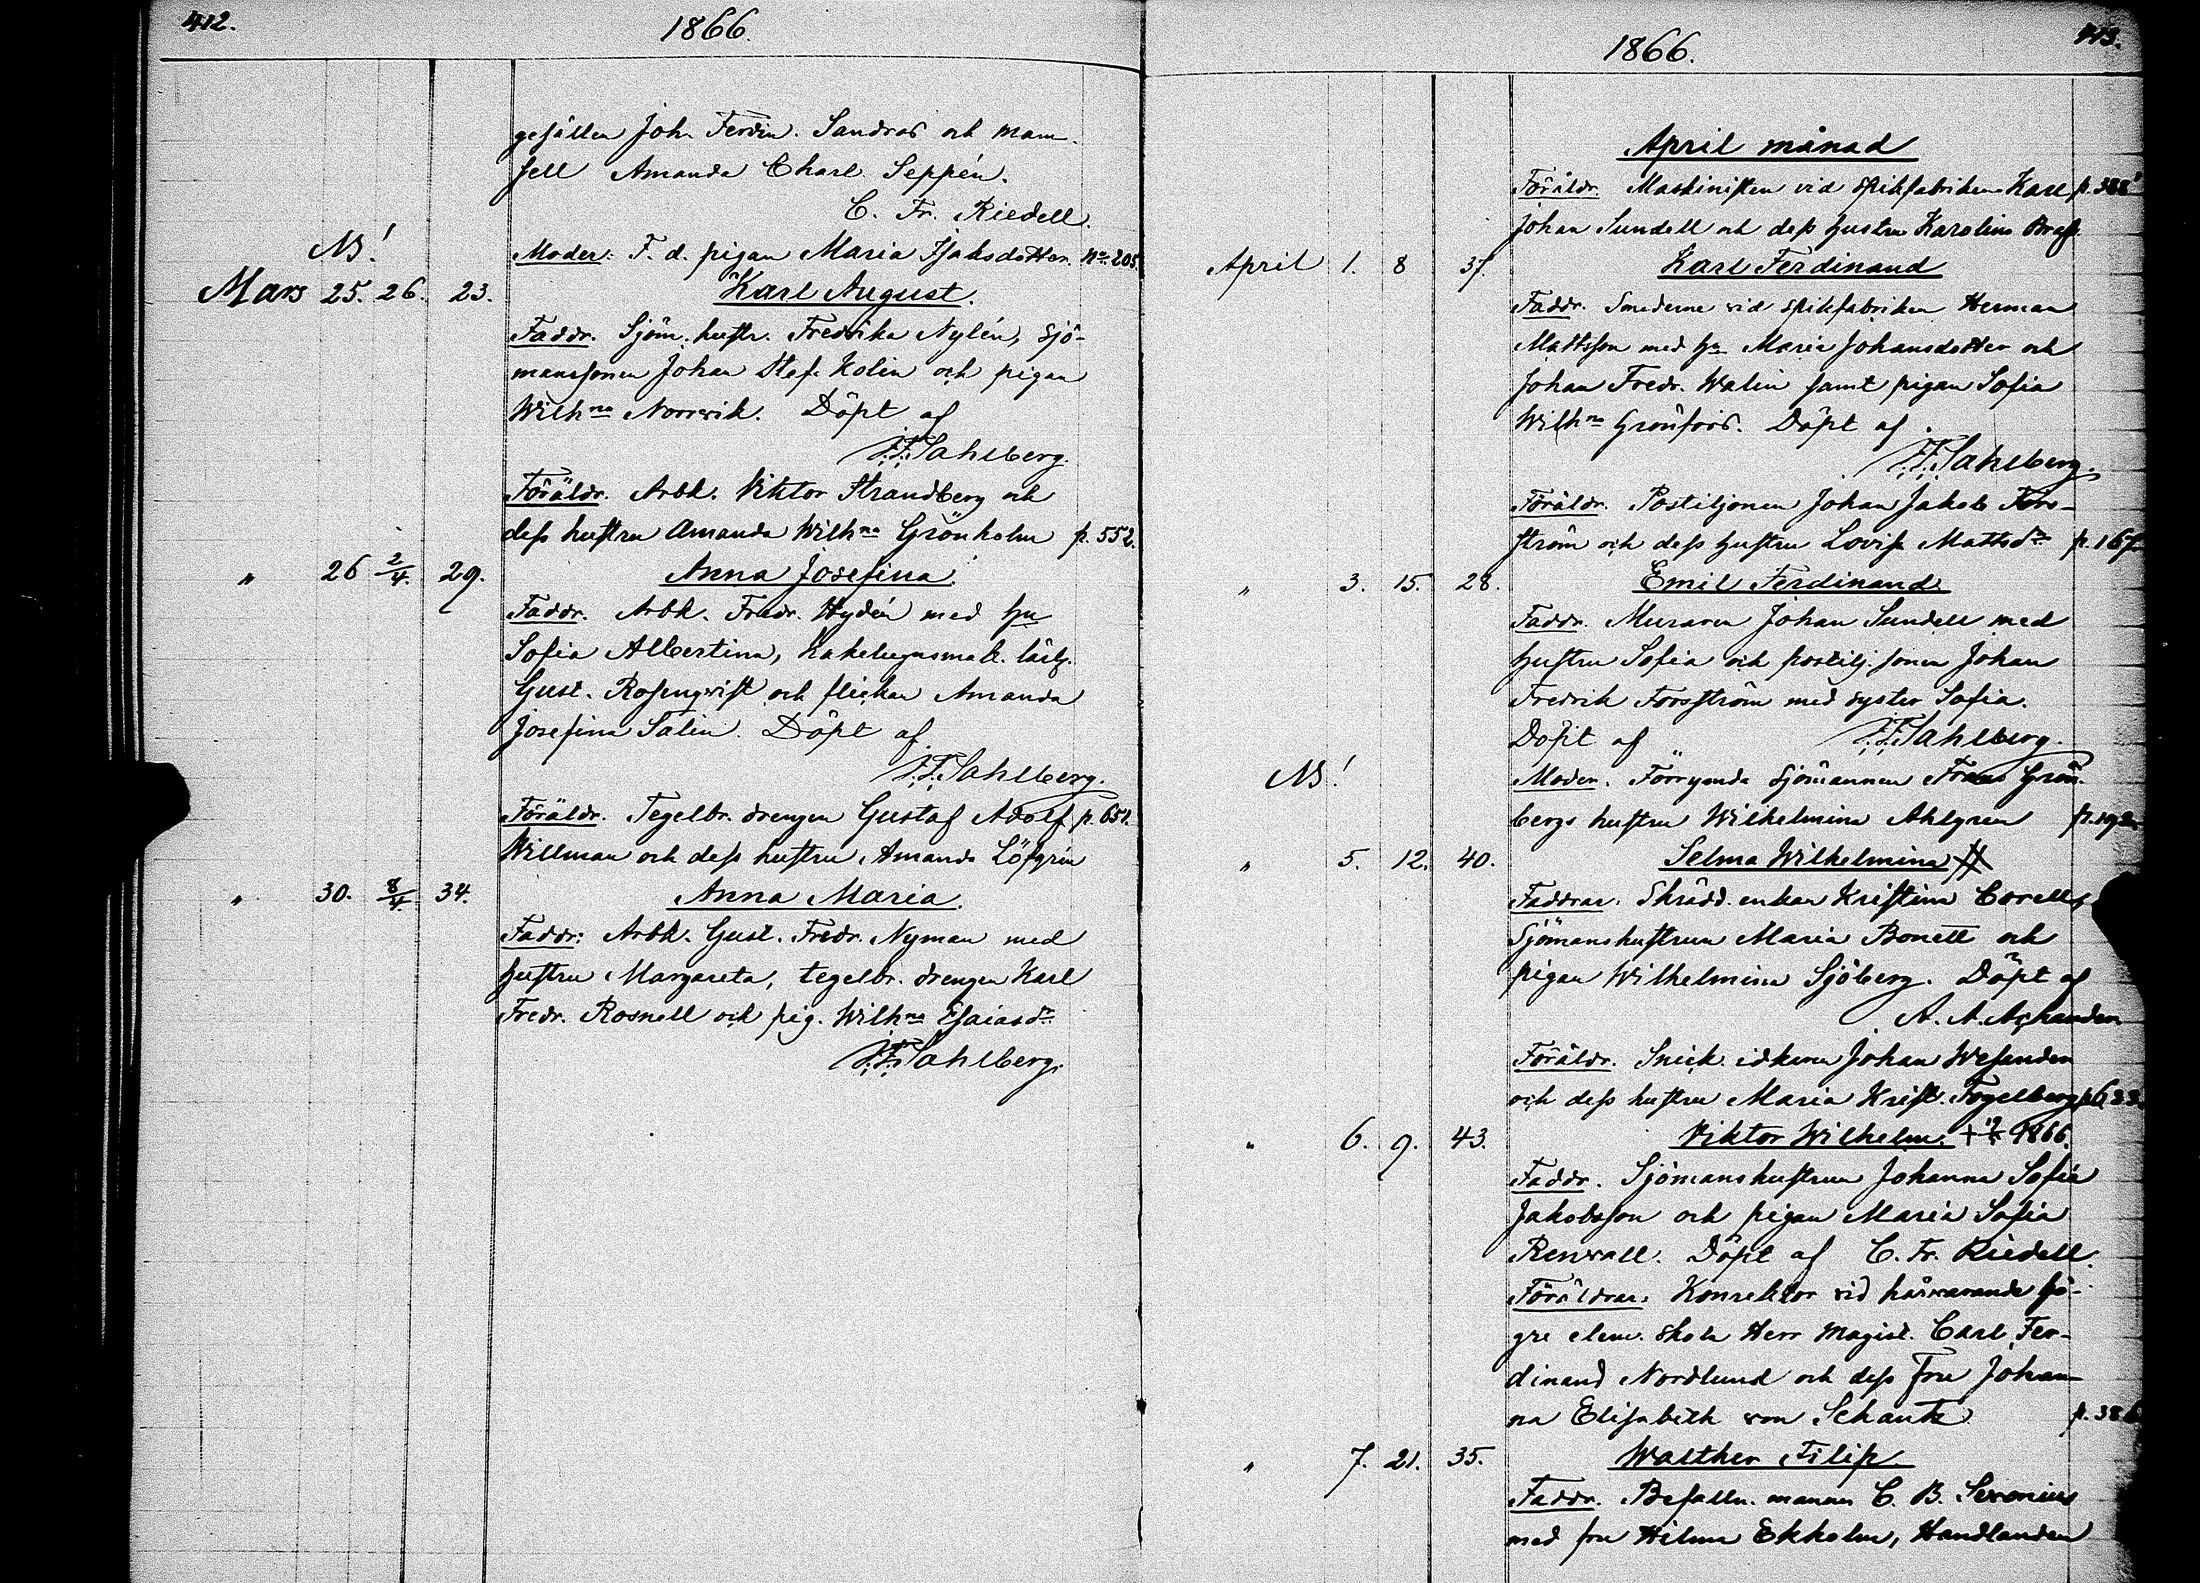 412.
1866.
gesällen Joh. Ferdin. Sandros och mam-
sell Amanda Charl. Seppén.
C. Fr. Riedell.
NB!
Moder: F. d. pigan Maria Isaksdotter. No 205.
Mars 25. 26. 23. Karl August.
Faddr. Sjöm. hustr. Fredrika Nylén, sjö-
manssonen Johan Stef. Kolin och pigan
Wilhna Norrvik. Döpt af
J. F. Sahlberg.
Föräldr. Arbk. Viktor Strandberg och
dess hustru Amanda Wilhna Grönholm p. 552.
" 26 2/4. 29. Anna Josefina.
Faddr. Arbk. Fredr. Hydén med hu
Sofia Albertina, Kakelugnsmak. lärl.
Gust. Rosenqvist och flickan Amanda
Josefina Salin. Döpt af
J. F. Sahlberg.
Föräldr. Tegelbr. drengen Gustaf Adolf p. 651.
Willman och dess hustru Amanda Löfgrén
" 30. 8/4. 34. Anna Maria.
Faddr: Arbk. Gust. Fredr. Nyman med
hustru Margareta, tegelbr. drengen Karl
Fredr. Rosnell och pig. Wilhna Esaiasdr
J. F. Sahlberg.
413.
1866.
April månad
Föräldr. Maskinisten vid spikfabriken Karl p. 388
Johan Sundell och dess hustru Karolina
April 1. 8 37. Karl Ferdinand
Faddr. Smederne vid spikfabriken Herman
Mattsson med hu Maria Johansdotter och
Johan Fredr. Walin samt pigan Sofia
Wilhna Grönfors. Döpt af
J. F. Sahlberg.
Föräldr. Postiljonen Johan Jakob Fors-
ström och dess hustru Lovisa Mattsdr p. 167
" 3. 15. 28. Emil Ferdinand.
Faddr. Muraren Johan Sundell med
hustru Sofia och postilj. sonen Johan
Fredrik Forsström med syster Sofia.
Döpt af J. F. Sahlberg.
NB! Moder. Förrymda sjömannen Frans Grön-
bergs hustru Wilhelmina Ahlgren p. 192.
" 5. 12. 40. Selma Wilhelmina
Faddrar. Skrädd. enkan Kristina Corell,
Sjömanshustrun Maria Bonett och
pigan Wilhelmina Sjöberg. Döpt af
A. A.
Föräldr. Snick. idkaren Johan Wesander
och dess hustru Maria Krist. Fogelberg p. 633.
" 6. 9. 43. Viktor Wilhelm. + 1866.
Faddr. Sjömanshustrun Johanna Sofia
Jakobsson och pigan Maria Sofia
Renvall. Döpt af C. Fr. Riedell.
Föräldrar. Konrektor vid härvarande hö-
gre elem. skola Herr Magist. Carl Fer-
dinand Nordlund och dess Fru Johan-
na Elisabeth von Schantz p. 386
" 7. 21. 35. Walther Filip.
Faddr. Befalln. mannen C. B.
med fru Hilma Ekholm, Handlanden